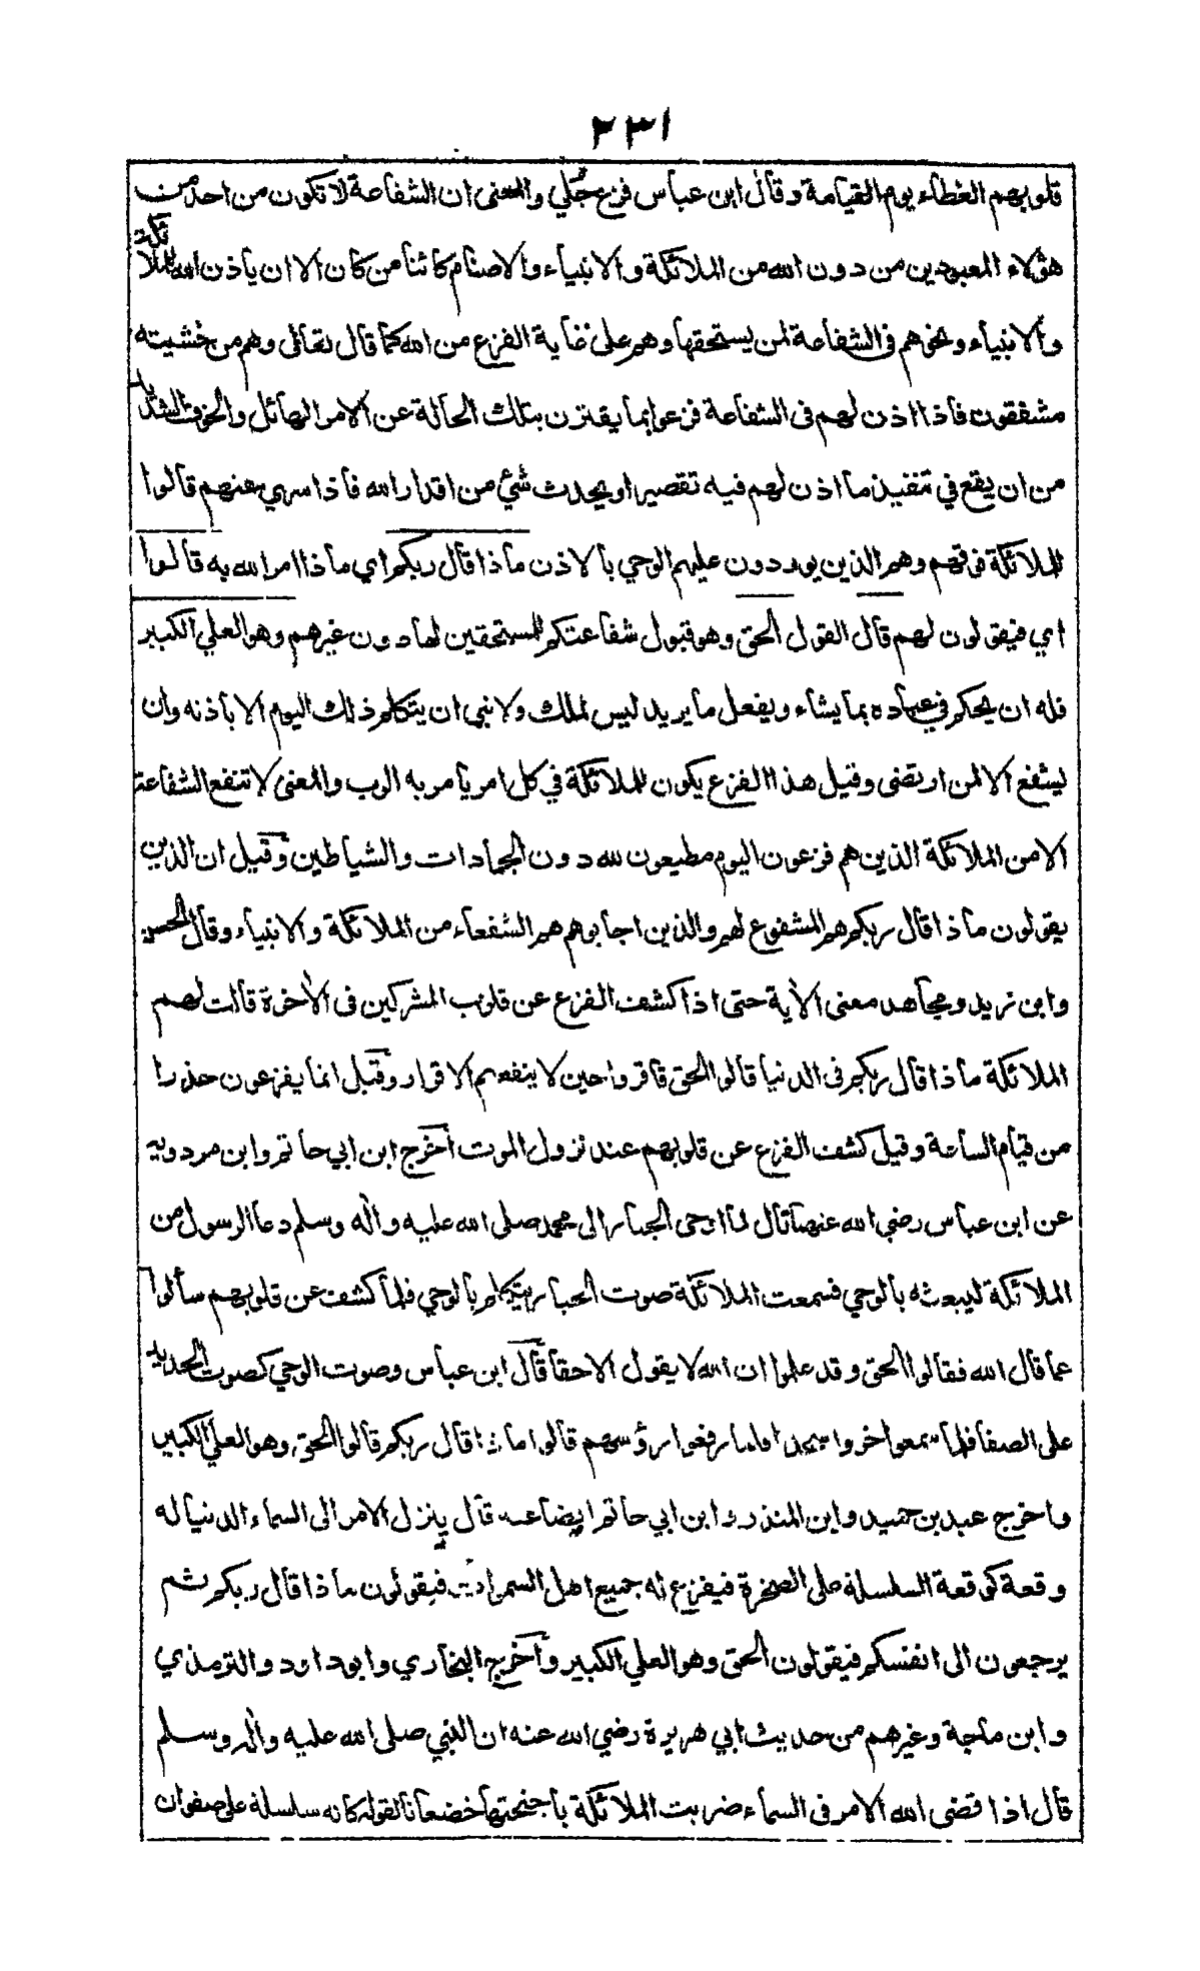 ٢٣١
قلوبهم الغطاء يوم القيامة وقال ابن عباس فزع جُلي والمعنى ان الشفاعة لا تكون من احد من
هؤلاء المعبودين من دون الله من الملائكة والانبياء والاصنام كائنا من كان الا ان ياذن الله للملائكة
والانبياء ونحوهم في الشفاعة لمن يستحقها وهم على غاية الفزع من الله كما قال تعالى وهم من خشيته
مشفقون فاذا اذن لهم فى الشفاعة فزعوا بما يقترن بتلك الحالة عن الامر الهائل والخوف الشديد
من ان يقع في تنفيذ ما اذن لهم فيه تقصير او يحدث شئ من اقدار الله فاذا سري عنهم قالوا
للملائكة فوقهم وهم الذين يوردون عليهم الوحي بالاذن ماذا قال ربكم اي ماذا امر الله به قالوا
اي فيقولون لهم قال القول الحق وهو قبول شفاعتكم للمستحقين لها دون غيرهم وهو العلي الكبير
فله ان يحكم في عباده بما يشاء ويفعل ما يريد ليس لملك ولا نبي ان يتكلم ذلك اليوم الا باذنه وان
ليشفع الا لمن ارتضى وقيل هذا الفزع يكون للملائكة في كل امر يامر به الرب والمعنى لا تنفع الشفاعة
الا من الملائكة الذين هم فزعون اليوم مطيعون لله دون الجمادات والشياطين وقيل ان الذين
يقولون ماذا قال ربكم هم المشفوع لهم والذين اجابوهم هم الشفعاء من الملائكة والانبياء وقال الحسن
وابن زيد ومجاهد معنى الآية حتى اذا كشف الفزع عن قلوب المشركين فى الآخرة قالت لهم
الملائكة ماذا قال ربكم فى الدنيا قالوا الحق فاقروا حين لا ينفعهم الاقرار وقيل انما يفزعون حذرا
من قيام الساعة وقيل كشف الفزع عن قلوبهم عند نزول الموت اخرج ابن ابي حاتم وابن مردويه
عن ابن عباس رضي الله عنهما قال لما اوحى الجبار الى محمد صلى الله عليه وآله وسلم دعا الرسول من
الملائكة ليبعثه بالوحي فسمعت الملائكة صوت الجبار يتكلم بالوحي فلما كشف عن قلوبهم سألوا
عما قال الله فقالوا الحق وقد علموا ان الله لا يقول الا حقا قال ابن عباس وصوت الوحي كصوت الحديد
على الصفا فلما سمعوا خروا سجدا فلما رفعوا رؤسهم قالوا ماذا قال ربكم قالوا الحق وهو العلي الكبير
واخرج عبد بن حميد وابن المنذر وابن ابي حاتم ايضا عنه قال ينزل الامر الى السماء الدنيا له
وقعة كوقعة السلسلة على الصخرة فيفزع له جميع اهل السموات فيقولون ماذا قال ربكم ثم
يرجعون الى انفسكم فيقولون الحق وهو العلي الكبير وأخرج البخاري وابو داود والترمذي
وابن ماجة وغيرهم من حديث ابي هريرة رضي الله عنه ان النبي صلى الله عليه وآله وسلم
قال اذا قضى الله الامر فى السماء ضربت الملائكة باجنحتها خضعانا لقوله كانه سلسلة على صفوان